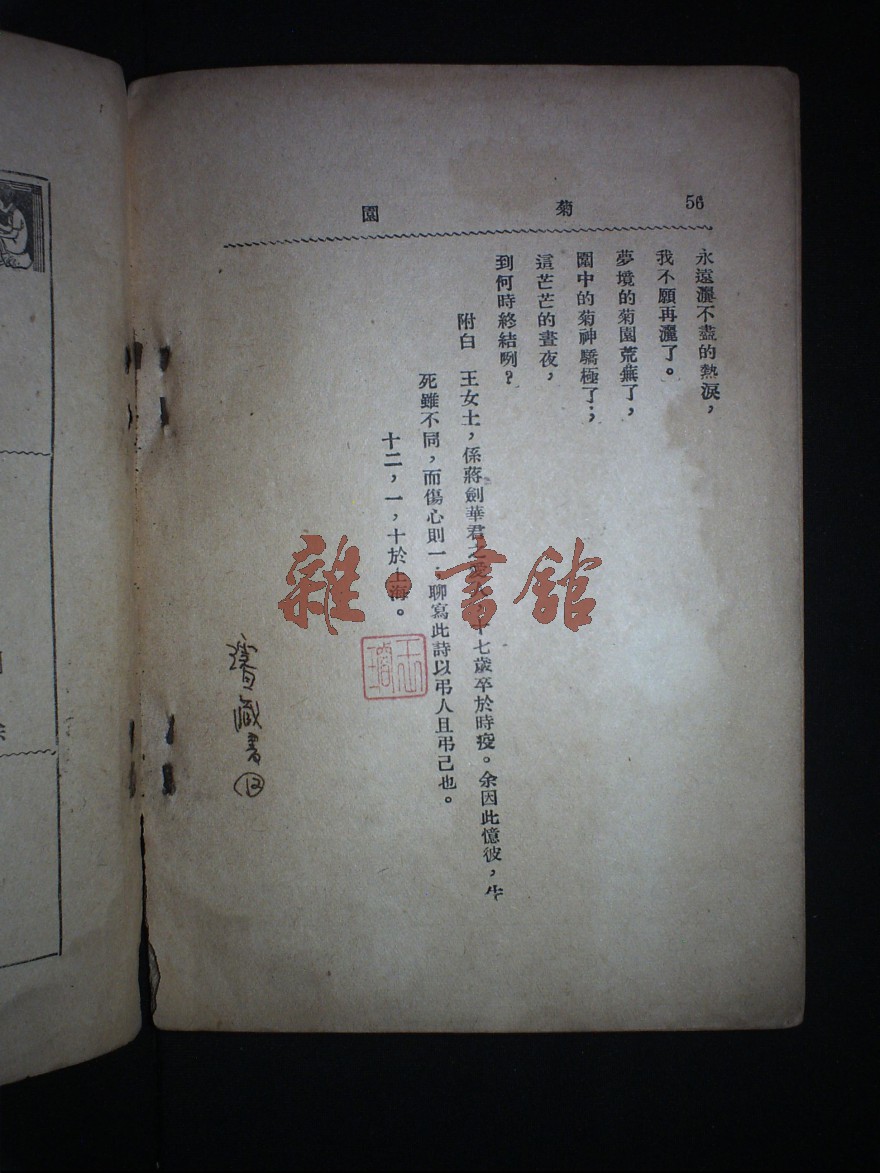 56
菊園
永遠灑不盡的熱淚，
我不願再灑了。
夢境的菊園荒蕪了，
園中的菊神驕極了；
這芒芒的晝夜，
到何時終結咧？
附白　王女士，係蔣劍華君之愛人，十七歲卒於時疫。余因此憶彼，生
死雖不同，而傷心則一：聊寫此詩以弔人且弔己也。
十二，一，十於上海。
藏書
12
雜·書館